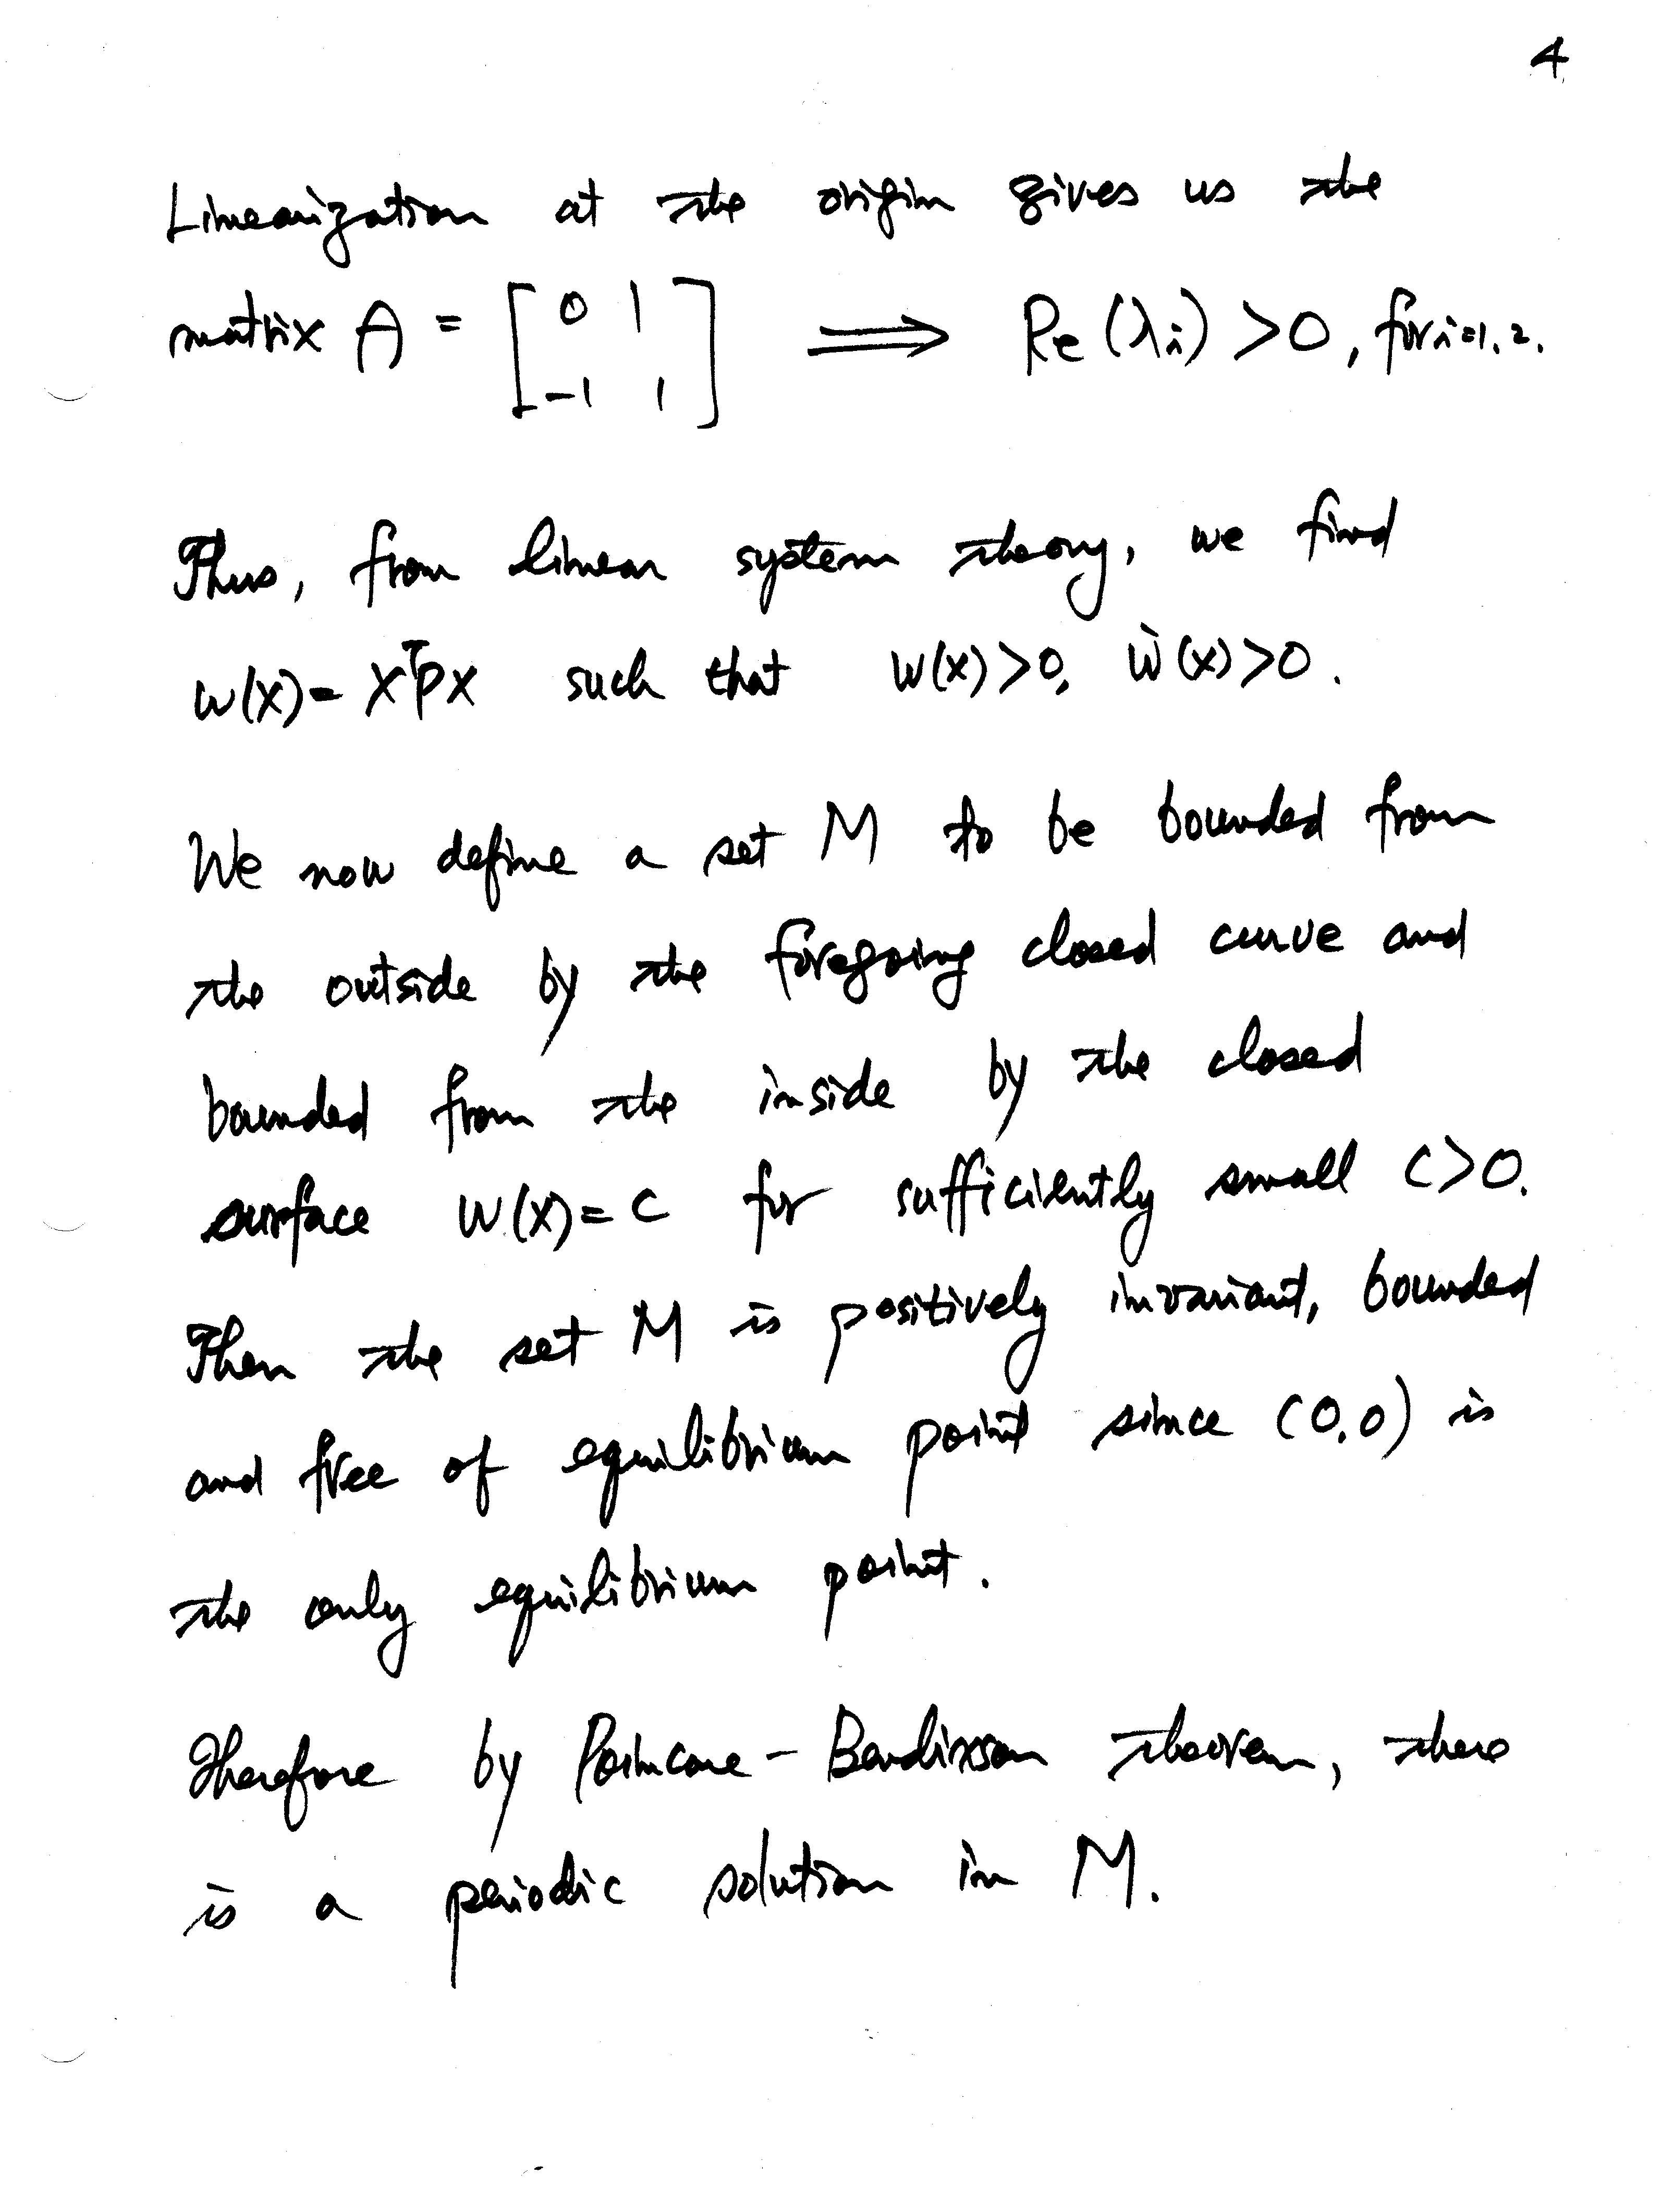 4
Linearization at the origin gives us the
matrix A = [ 0 1 ; -1 1 ] ⟹ Re(λi) > 0, for i=1,2.
Thus, from linear system theory, we find
W(x) = xᵀPx such that W(x)>0, Ẇ(x)>0.
We now define a set M to be bounded from
the outside by the foregoing closed curve and
bounded from the inside by the closed
surface W(x) = c for sufficiently small c>0.
Then the set M is positively invariant, bounded
and free of equilibrium point since (0,0) is
the only equilibrium point.
Therefore by Poincare-Bendixson theorem, there
is a periodic solution in M.